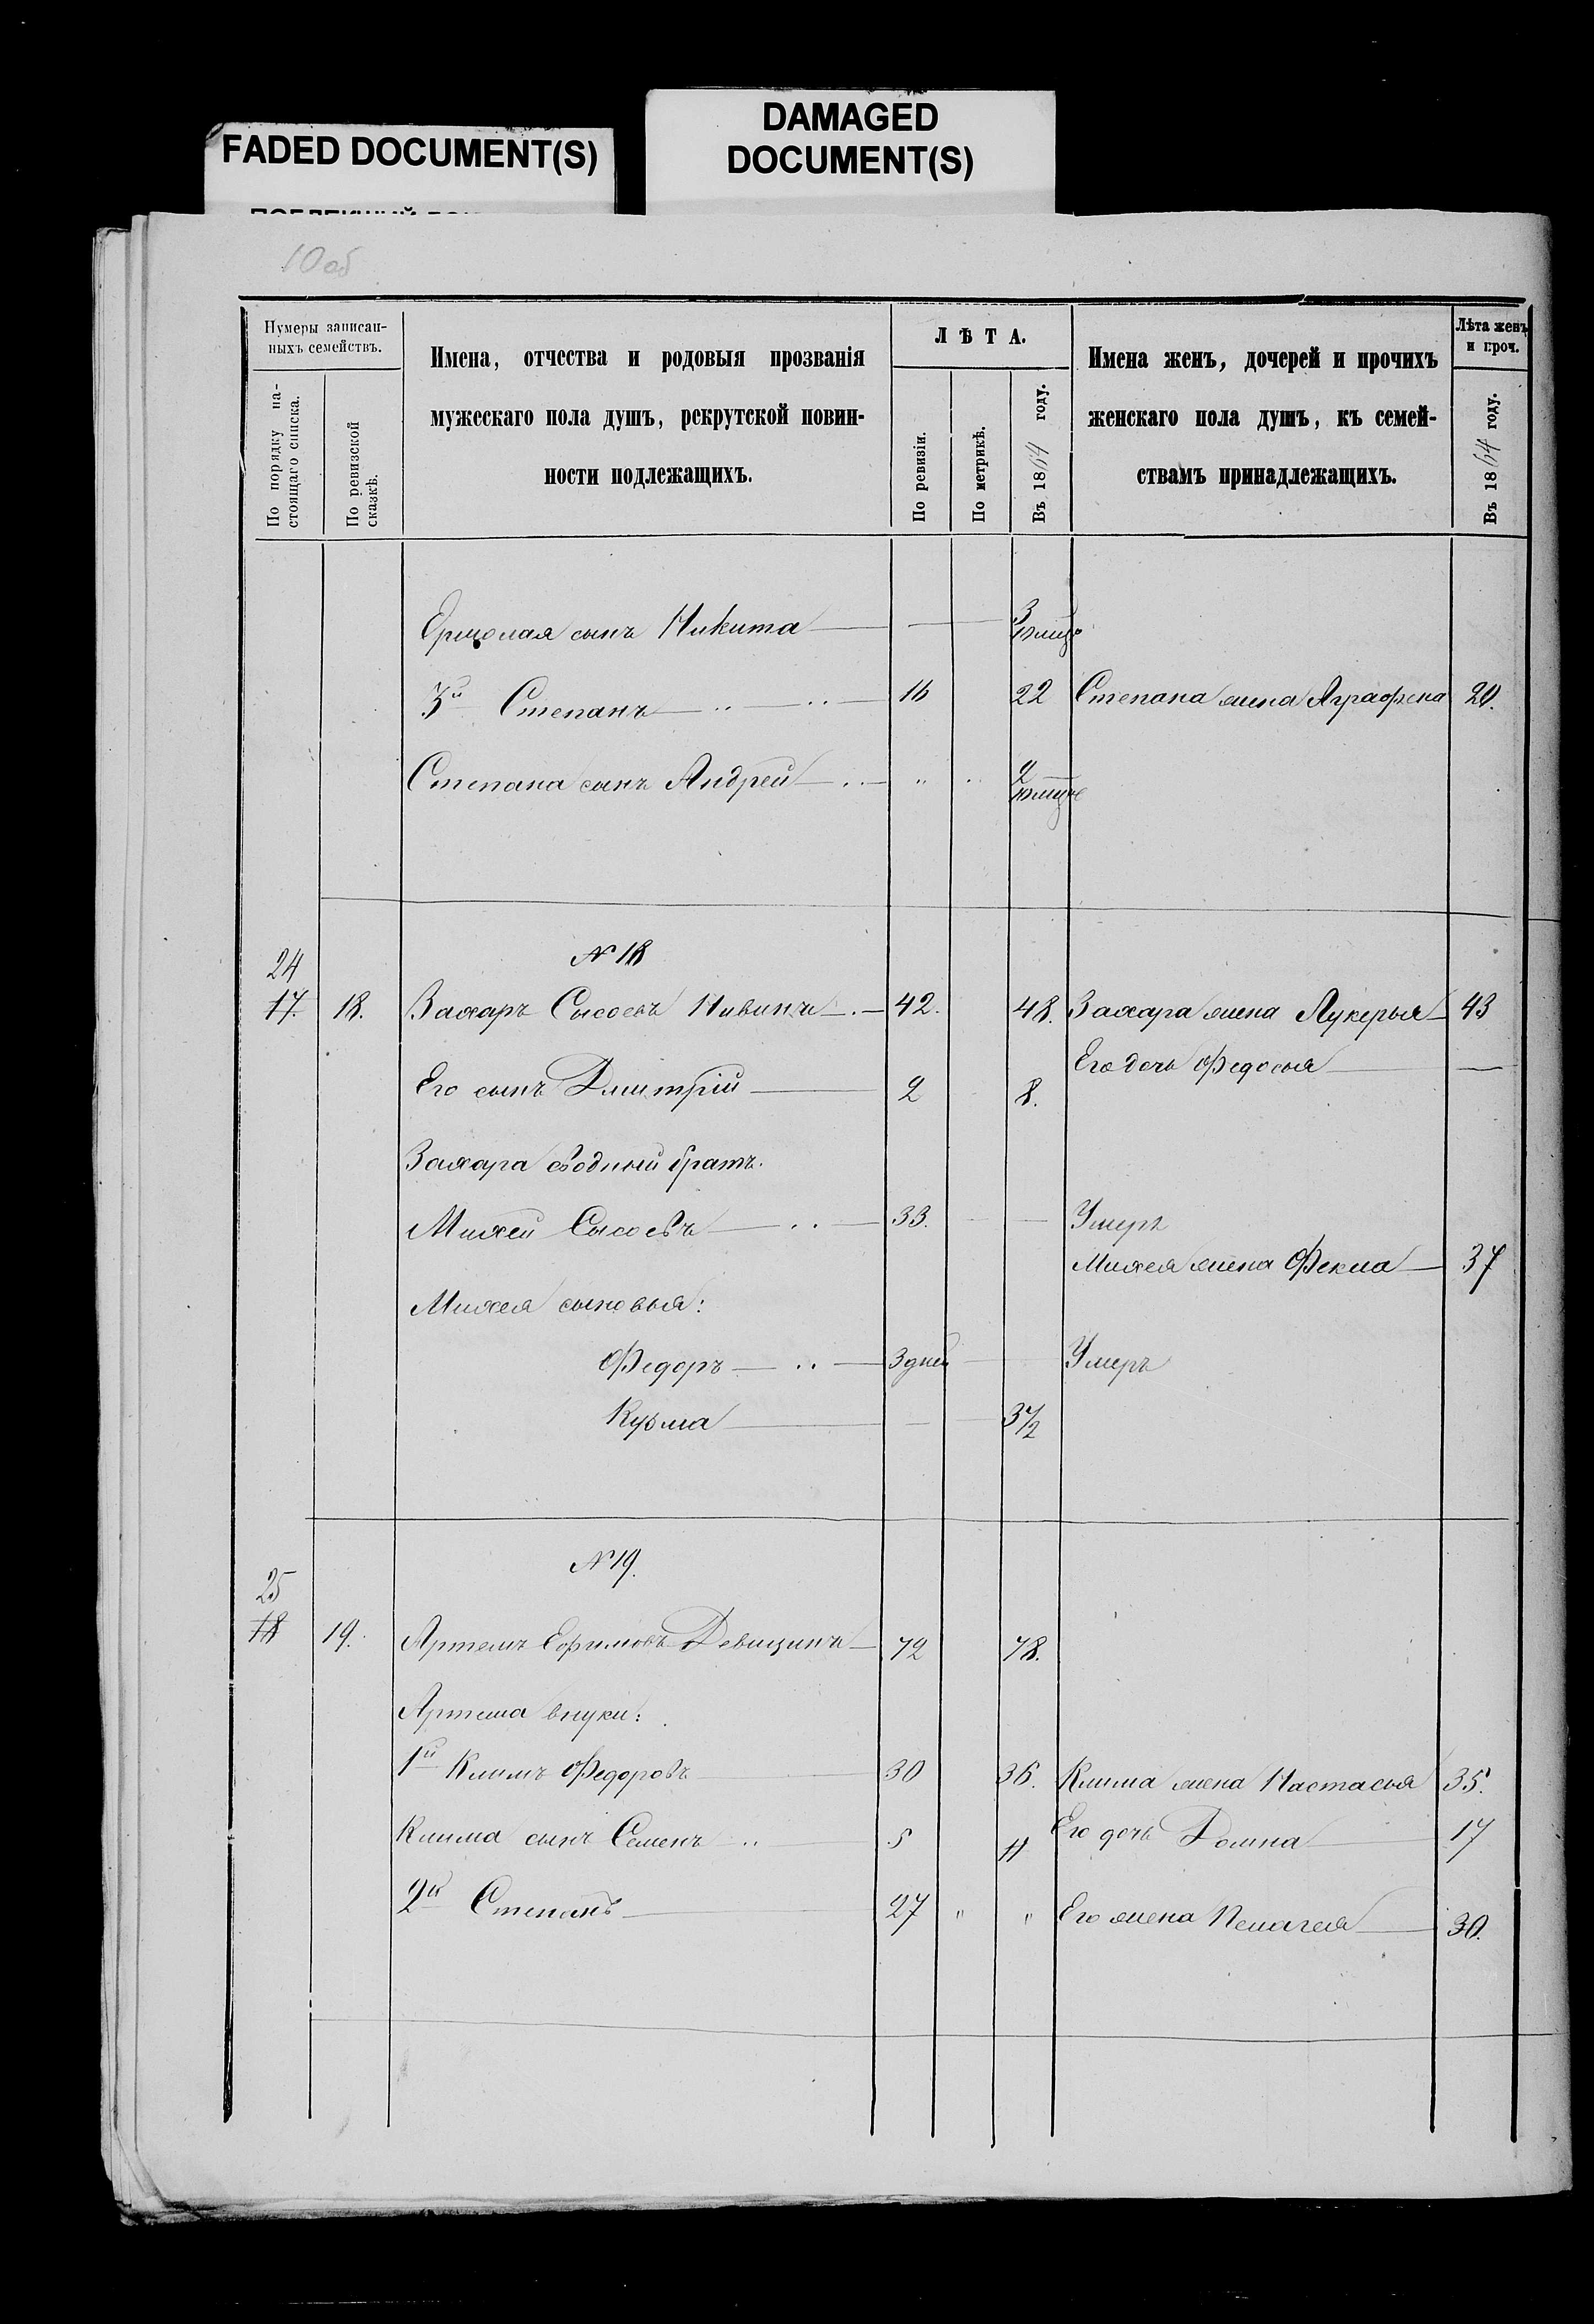 FADED DOCUMENT(S)
DAMAGED
DOCUMENT(S)
10 об
Нумеры записан-
ныхъ семействъ.
По порядку на-
стоящаго списка.
По ревизской
сказкѣ.
Имена, отчества и родовыя прозванія
мужескаго пола душъ, рекрутской повин-
ности подлежащихъ.
ЛѢТА.
По ревизіи.
По метрикѣ.
Въ 1864 году.
Имена женъ, дочерей и прочихъ
женскаго пола душъ, къ семей-
ствамъ принадлежащихъ.
Лѣта женъ
и проч.
Въ 1864 году.
Ермолая сынъ Никита — — 3
3й Степанъ 16 22 Степана жена Аграфена 20.
Степана сынъ Андрей " " 2
№ 18
24
17. 18. Захаръ Сысоевъ Нивинъ 42. 48. Захара жена Лукерья 43
Его дочь Федосья —
Его сынъ Дмитрій 2 8.
Захара сводный братъ.
Михей Сысоевъ 33. — Умеръ
Михея жена Фекла 37
Михея сыновья:
Федоръ 3 дней Умеръ
Кузьма — 3 1/2
№ 19.
25
18 19. Артемъ Ефимовъ Девицинъ 72 78.
Артема внуки:
1й Климъ Федоровъ 30 36. Клима жена Настасья 35.
Клима сынъ Семенъ 5 11 Его дочь Домна 17
2й Степанъ 27 " " Его жена Пелагея 30.